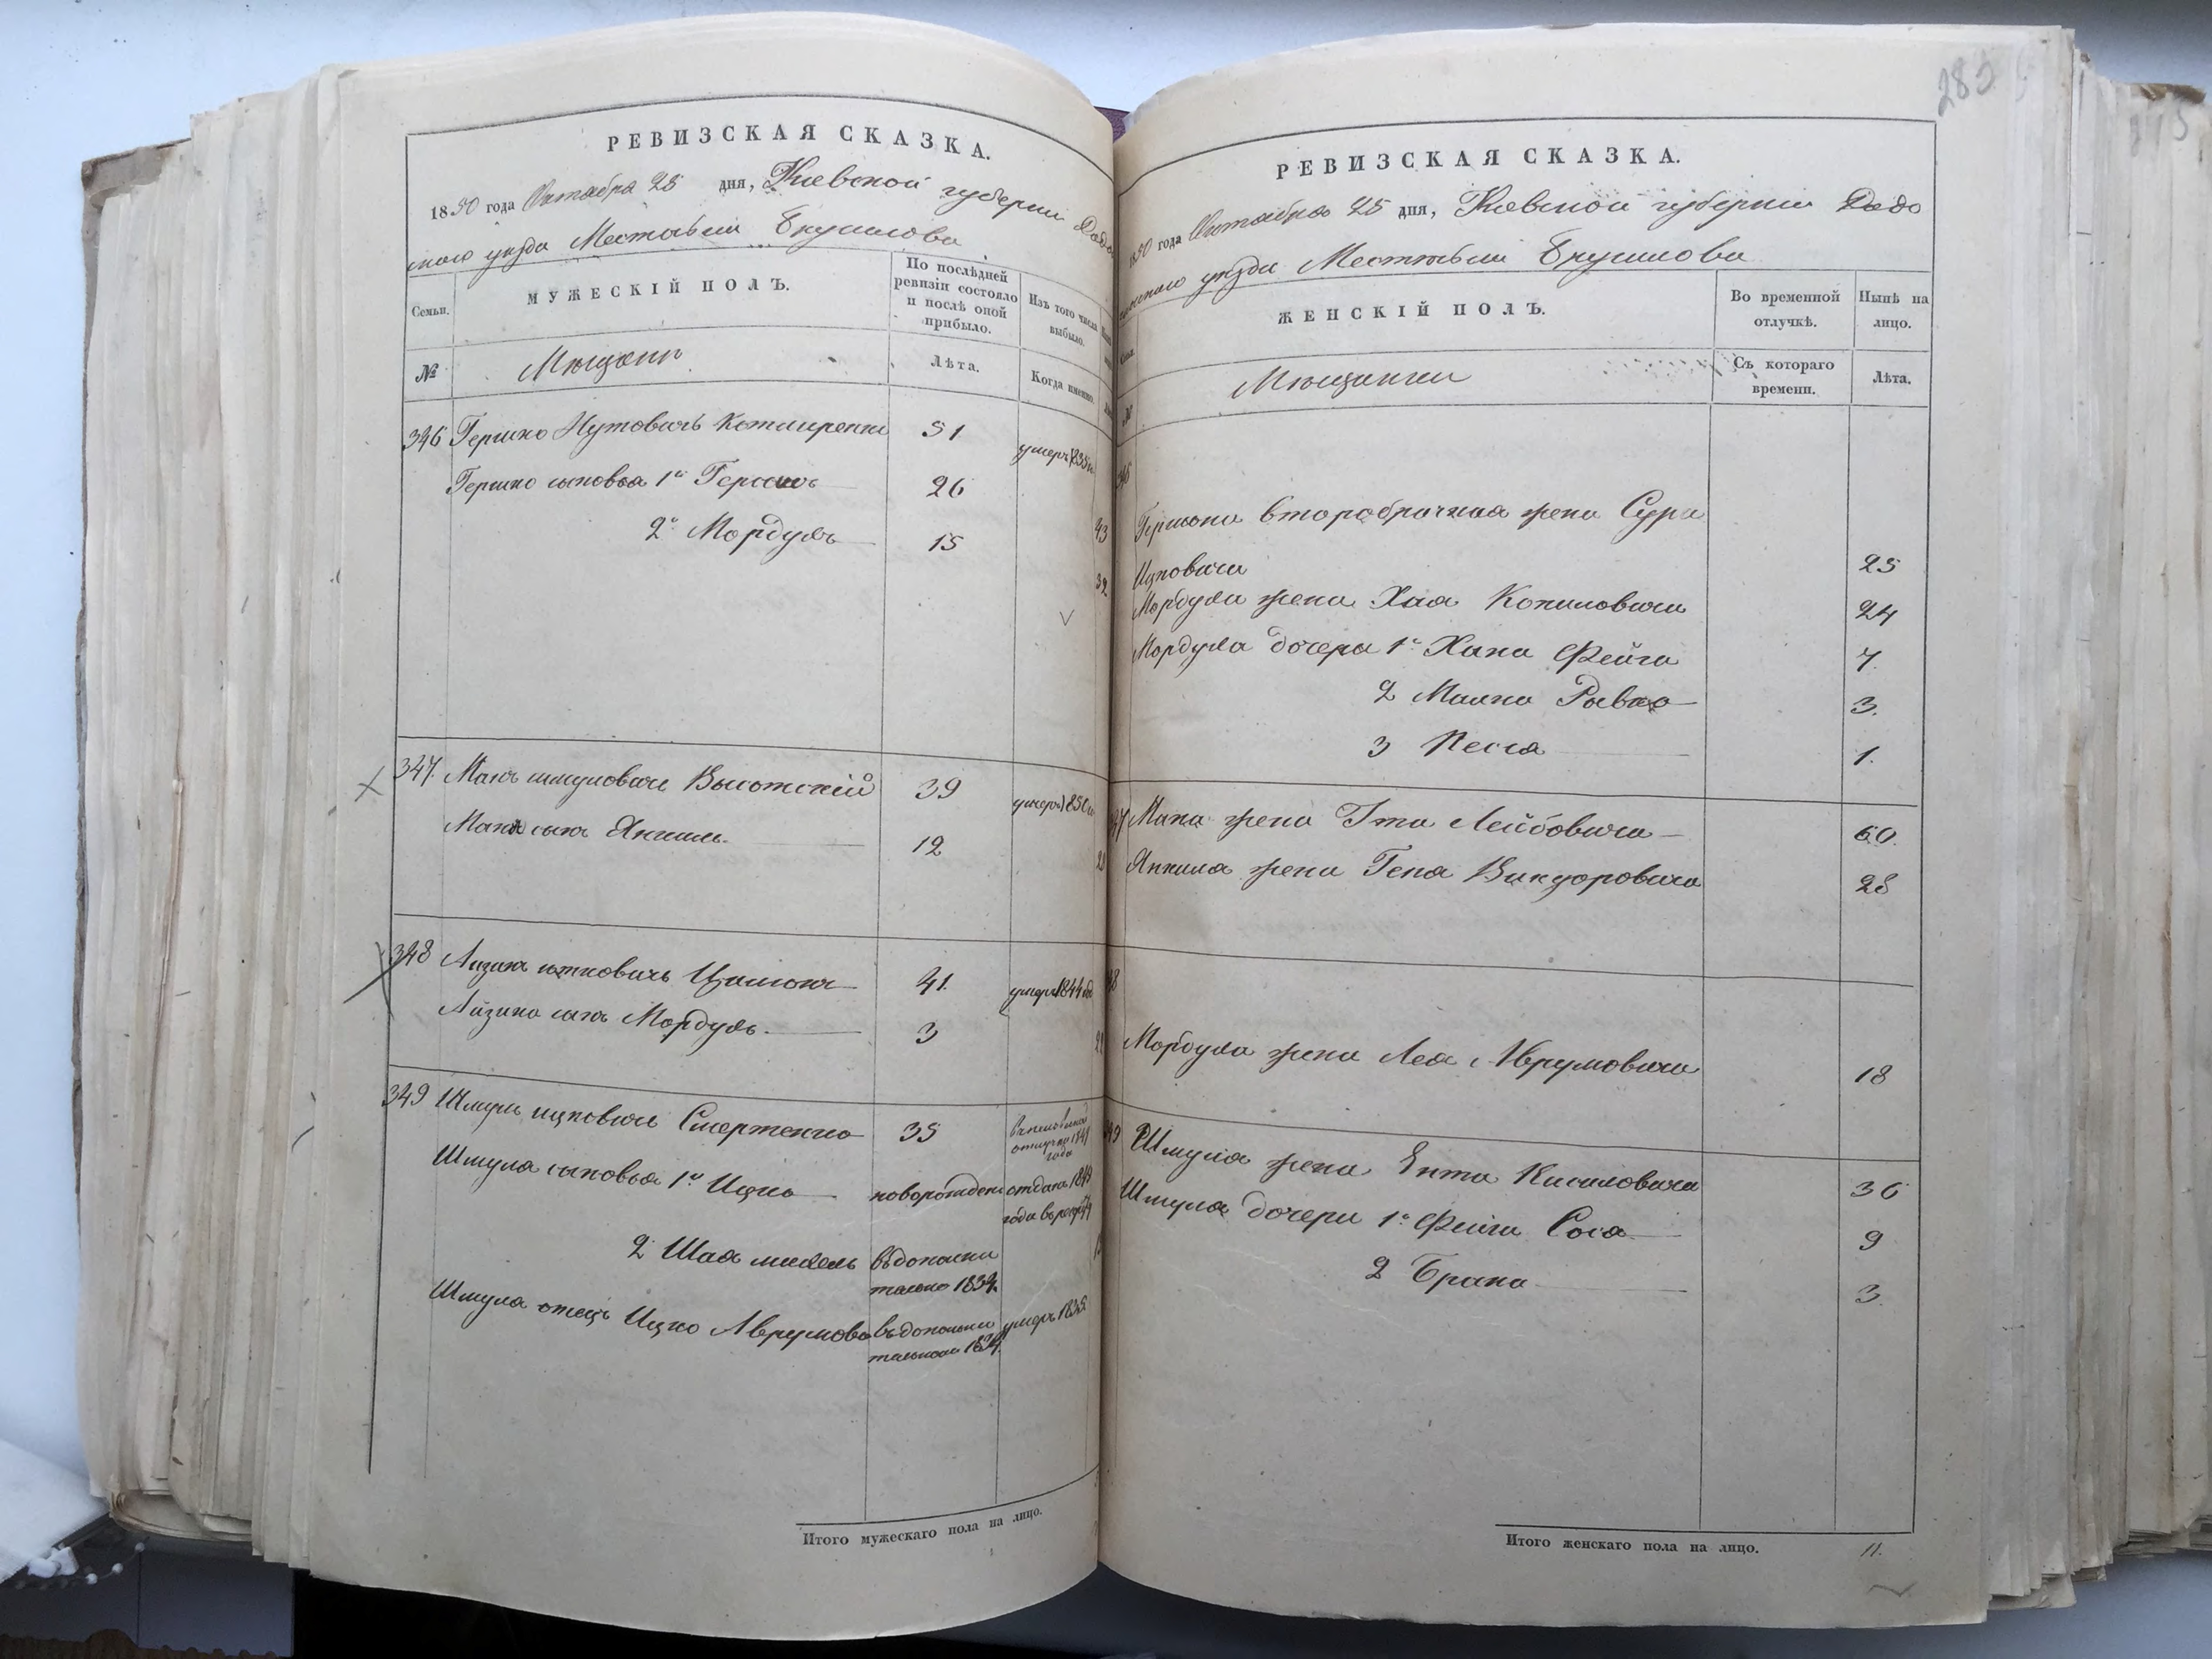 РЕВИЗСКАЯ СКАЗКА.
1850 года Октября 25 дня, Киевской губернии Радо
мысл уезда Местечка Брусилова
Семьи. МУЖЕСКІЙ ПОЛЪ. По послѣдней ревизіи состояло и послѣ оной прибыло. Изъ того числа выбыло.
№ Мещани Лѣта. Когда именно.
346 Гершко Нутовичъ 51 умеръ 1835
Гершко сыновья 1й Гершонъ 26 43
2й Мордухъ 15 32
347. Манъ шмулович Высотскій 39 умеръ 1850
Мана сынъ Янкель 12
348 Айзикъ ицковичъ 41. умеръ 1844
Айзика сынъ Мордухъ 3
349 Шмуль ицкович Смертенко 35 отлучке 1841 года
Шмуля сыновья 1й Ицко новорожден отданъ 1849
года в рекруты
2 Шая въдополни
тельно 1834.
Шмуля отецъ Ицко Аврумово въдополни умеръ 1835
тельною 1834.
Итого мужескаго пола на лицо.
285
РЕВИЗСКАЯ СКАЗКА.
1850 года Октября 25 дня, Киевской губерніи Радо
мысл уезда Местечка Брусилова
ЖЕНСКІЙ ПОЛЪ. Во временной отлучкѣ. Нынѣ на лицо.
№ Мещанки Съ котораго времени. Лѣта.
346
Гершона второбрачная жена Сура
Ицковича 25
Мордуха жена Хая 24
Мордуха дочери 1я Хана Фейга 7.
2 Малка Рывка 3.
3 Песся 1.
Мана жена Ита Лейбовича 60.
Янкеля жена Геня 28
48
Мордуха жена Лея Аврумовича 18
Шмуля жена Ента Кисилович 36
Шмуля дочери 1я Фейга Сося 9
2 Брана 3.
Итого женскаго пола на лицо. 11.